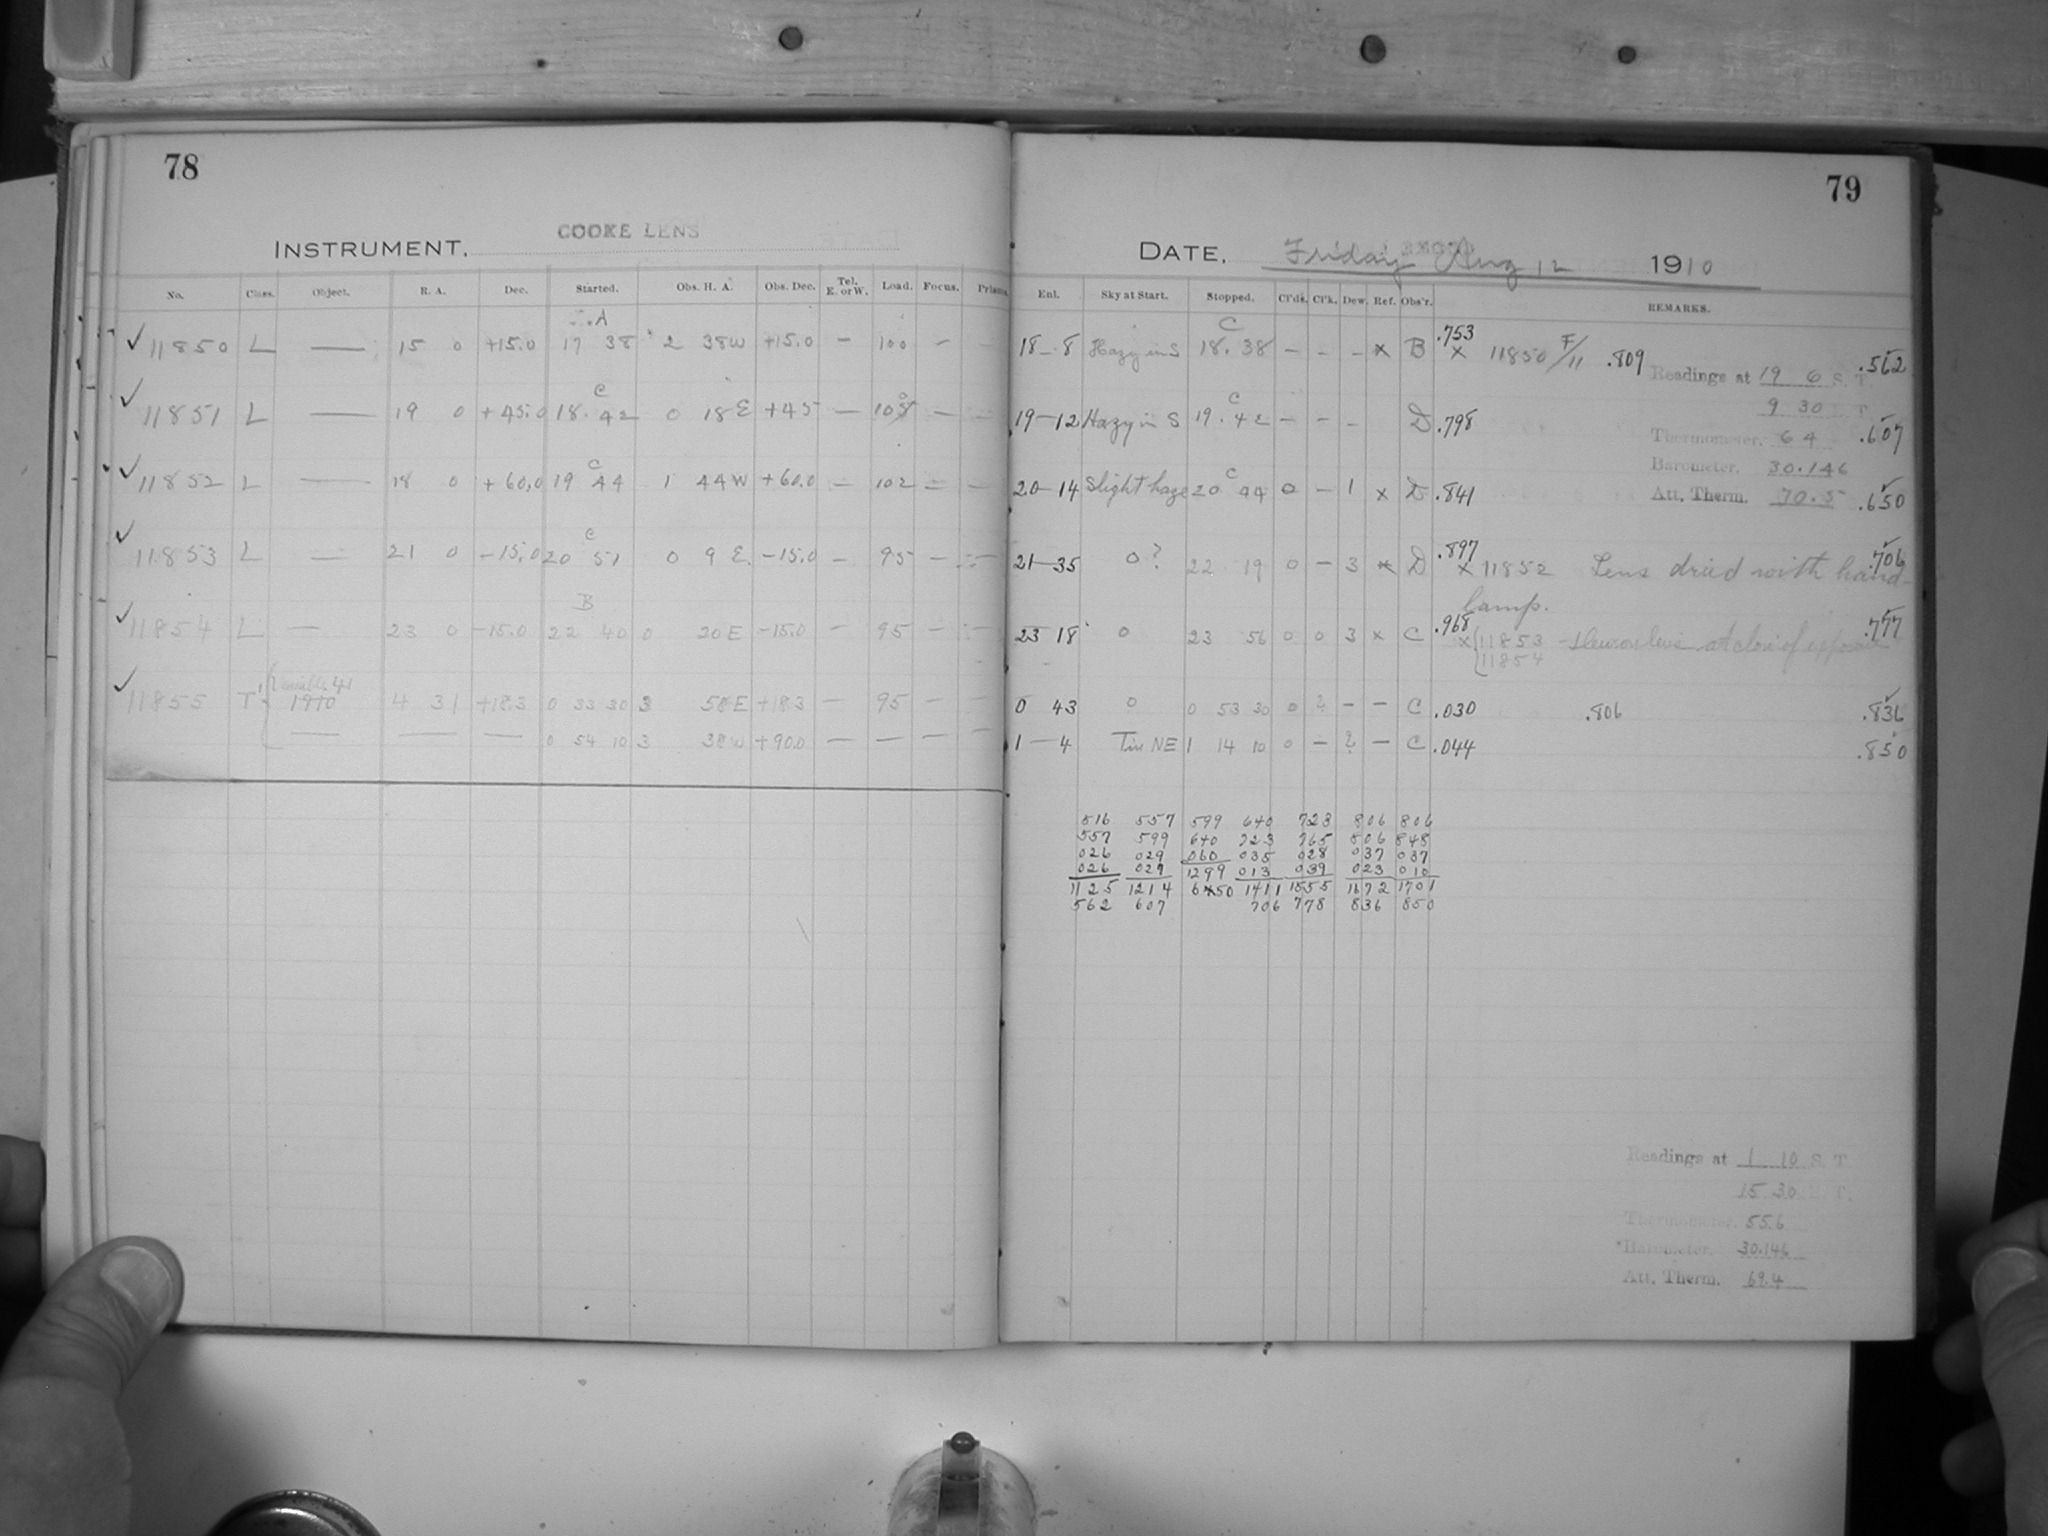 78
INSTRUMENT. COOKE LENS
No. Class. Object. R. A. Dec. Started. Obs. H. A. Obs. Dec. Tel. E. or W. Load. Focus. Prisms.
A
11850 L — 15 0 +15.0 17 38 2 38W +15.0 — 100 — —
C
11851 L — 19 0 +45.0 18.42 0 18E +45 — — —
C
11852 L — 18 0 +60.0 19 44 1 44W +60.0 — 102 — —
C
11853 L — 21 0 -15.0 20 51 0 9E. -15.0 — 95 — —
B
11854 L — 23 0 -15.0 22 40 0 20E -15.0 — 95 — —
11855 T 4 31 +18.3 0 33 30 3 58E +18.3 — 95 — —
— — — 0 54 10 3 38W +90.0 — — — —
79
DATE. Friday Aug 12 1910
Enl. Sky at Start. Stopped. Cl'ds. Cl'k. Dew. Ref. Obs'r. REMARKS.
C
18-8 Hazy in S 18.38 — — — x B .753 x 11850 F/11 .809 .562
Readings at 19 6 S. T.
9 30 T.
C
19-12 Hazy in S 19.42 — — — D .798 .607
Thermometer. 64
Barometer. 30.146
C
20-14 Slight haze 20 44 0 — 1 x D .841 .650
Att. Therm. 70.5
21-35 0? 22 19 0 — 3 x D .897 x 11852 Lens dried with hand- .706
lamp.
23 18 0 23 56 0 0 3 x C .968 x 11853 - Dew on lens at close of exposure .777
11854
0 43 0 0 53 30 0 ? — — C .030 .806 .836
1-4 NE 1 14 10 0 — ? — C .044 .850
516 557 599 640 723 806 806
557 599 640 723 765 806 848
026 029 060 035 028 037 037
026 029 1299 013 039 023 010
1125 1214 650 1411 1555 1672 1701
562 607 706 778 836 850
Readings at 1 10 S. T.
15 30 T.
Thermometer. 55.6
Barometer. 30.146
Att. Therm. 69.4